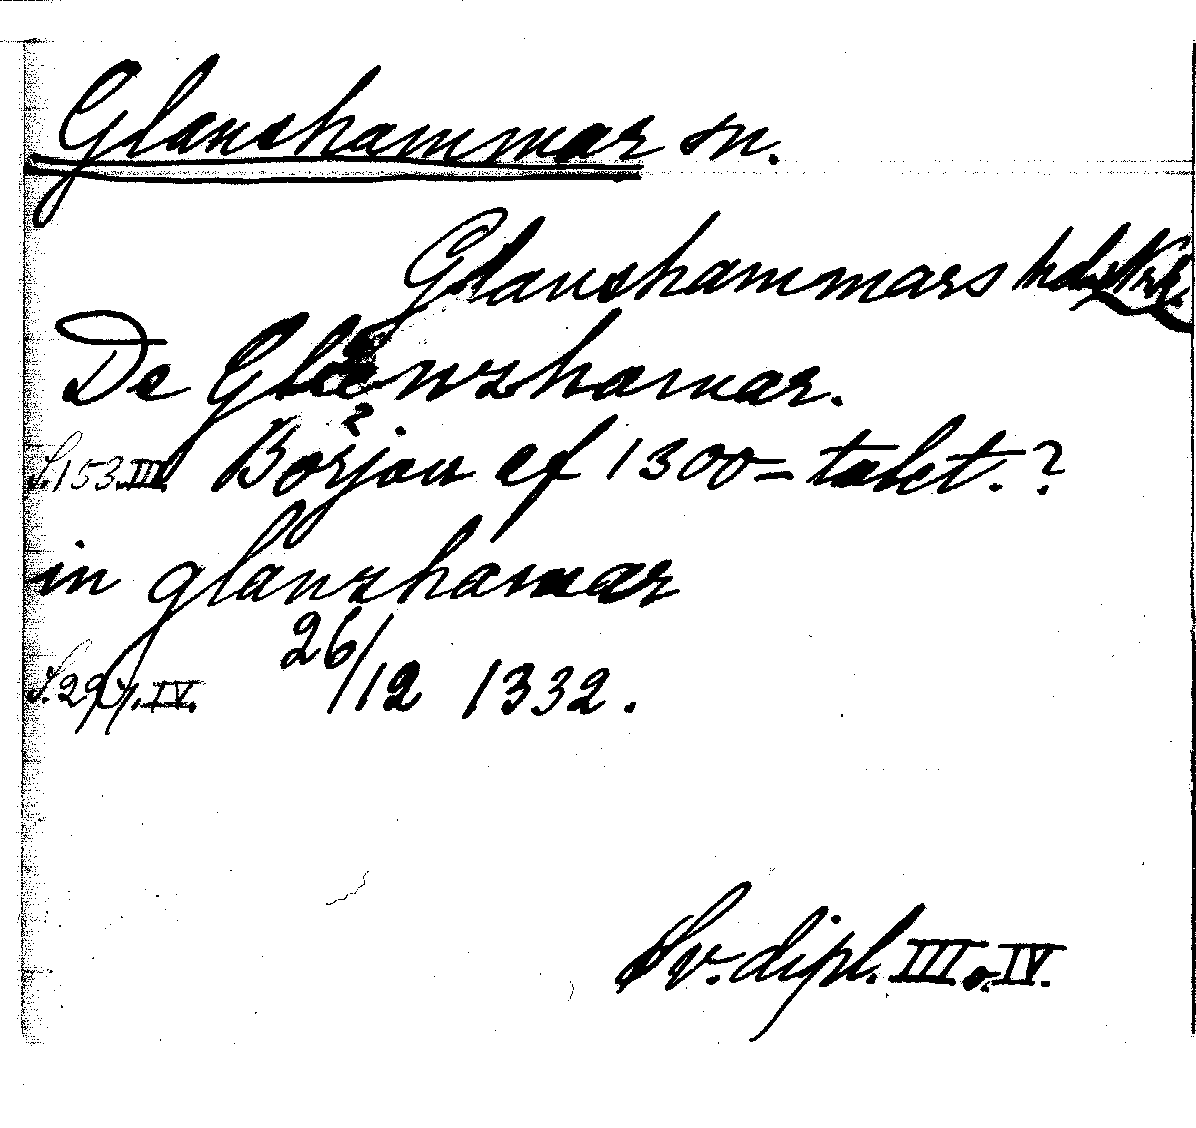 Glanshammar sn.
Glanshammars hd. Nrk.
De Glænzhamar.
S.153.III. Början af 1300-talet.?
in glanzhamar
S.297.IV. 26/12 1332.
Sv. dipl. III o. IV.